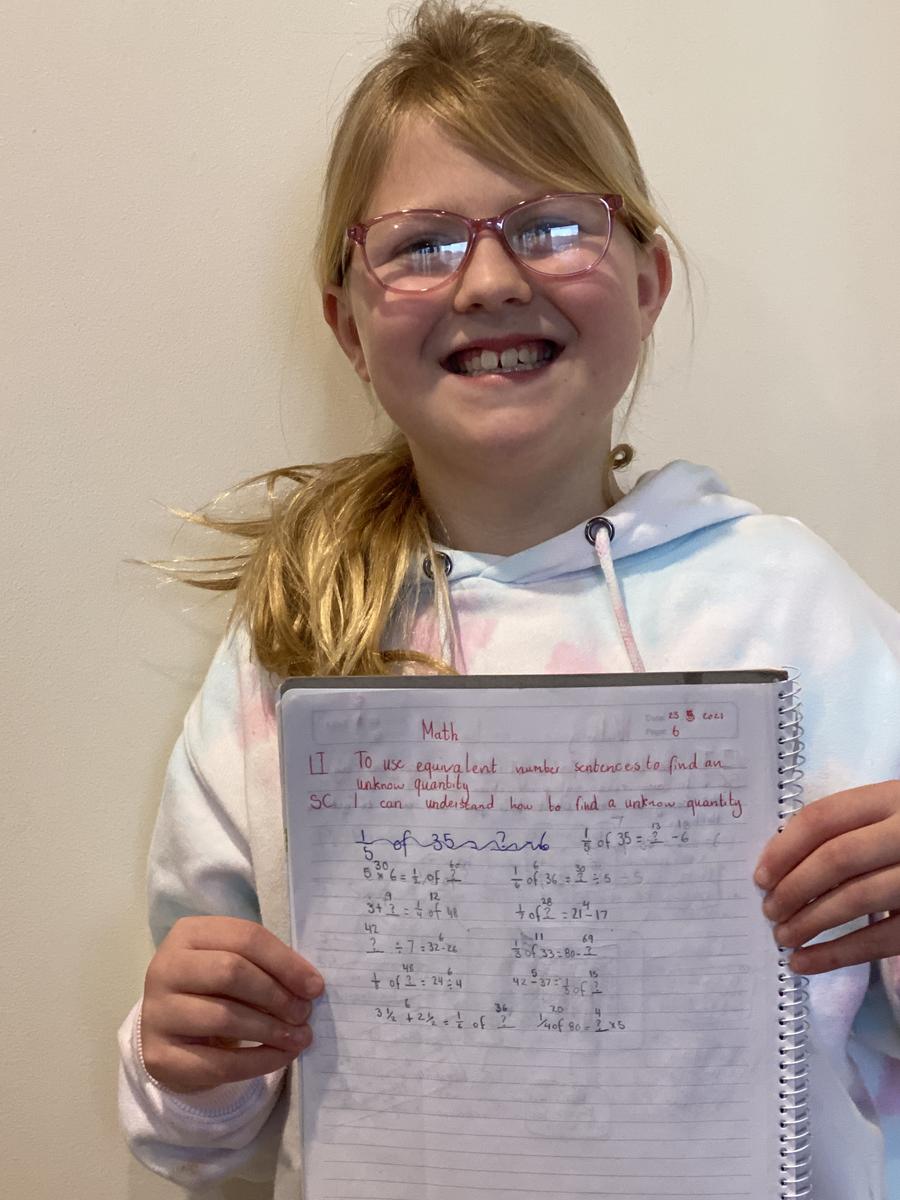 Math
Date: 23 8 2021
Page: 6
LI To use equivalent number sentences to find an
unknow quantity
SC I can understand how to find a unknow quantity
1/5 of 35 = ? - 6
7 13
1/5 of 35 = ? - 6
30 60
5 × 6 = 1/2 of ?
6 30
1/6 of 36 = ? ÷ 5
9 12
3 + ? = 1/4 of 48
28 4
1/7 of ? = 21 - 17
42 6
? ÷ 7 = 32 - 26
11 69
1/3 of 33 = 80 - ?
48 6
of ? = 24 ÷ 4
5 15
42 - 37 = 1/3 of ?
6 36
3 1/2 + 2 1/2 = 1/6 of ?
20 4
1/4 of 80 = ? × 5